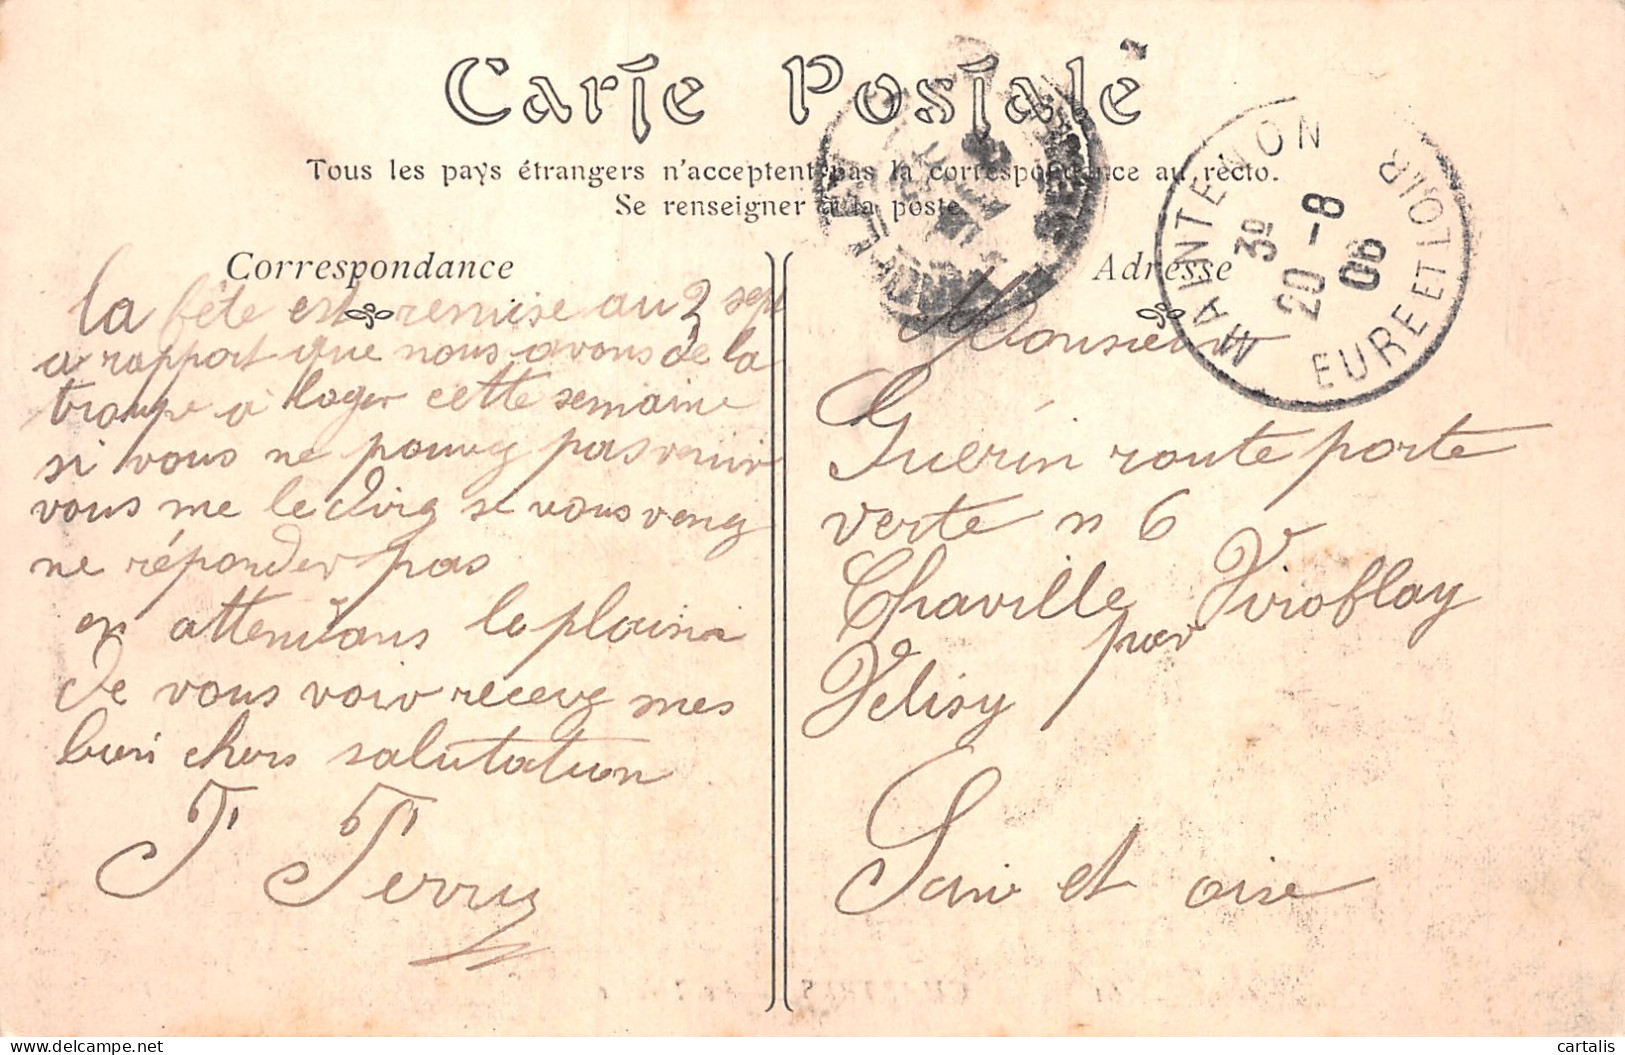 Carte Postale
Tous les pays étrangers n'acceptent pas la correspondance au recto.
Se renseigner à la poste.
Correspondance
la fête est remise au 2 sept
a rapport que nous avons de la
troupe a loger cette semaine
si vous ne pouvez pas venir
vous me le direz se vous venez
ne répondez pas
en attendans le plaisir
de vous voir recevez mes
bon chers salutation
T Terry
Adresse
Monsieur
Guérin route porte
verte n 6
Chaville par Viroflay
Velisy
Seine et oise
MAINTENON
3E
20 -8
06
EURE ET LOIR
cartalis